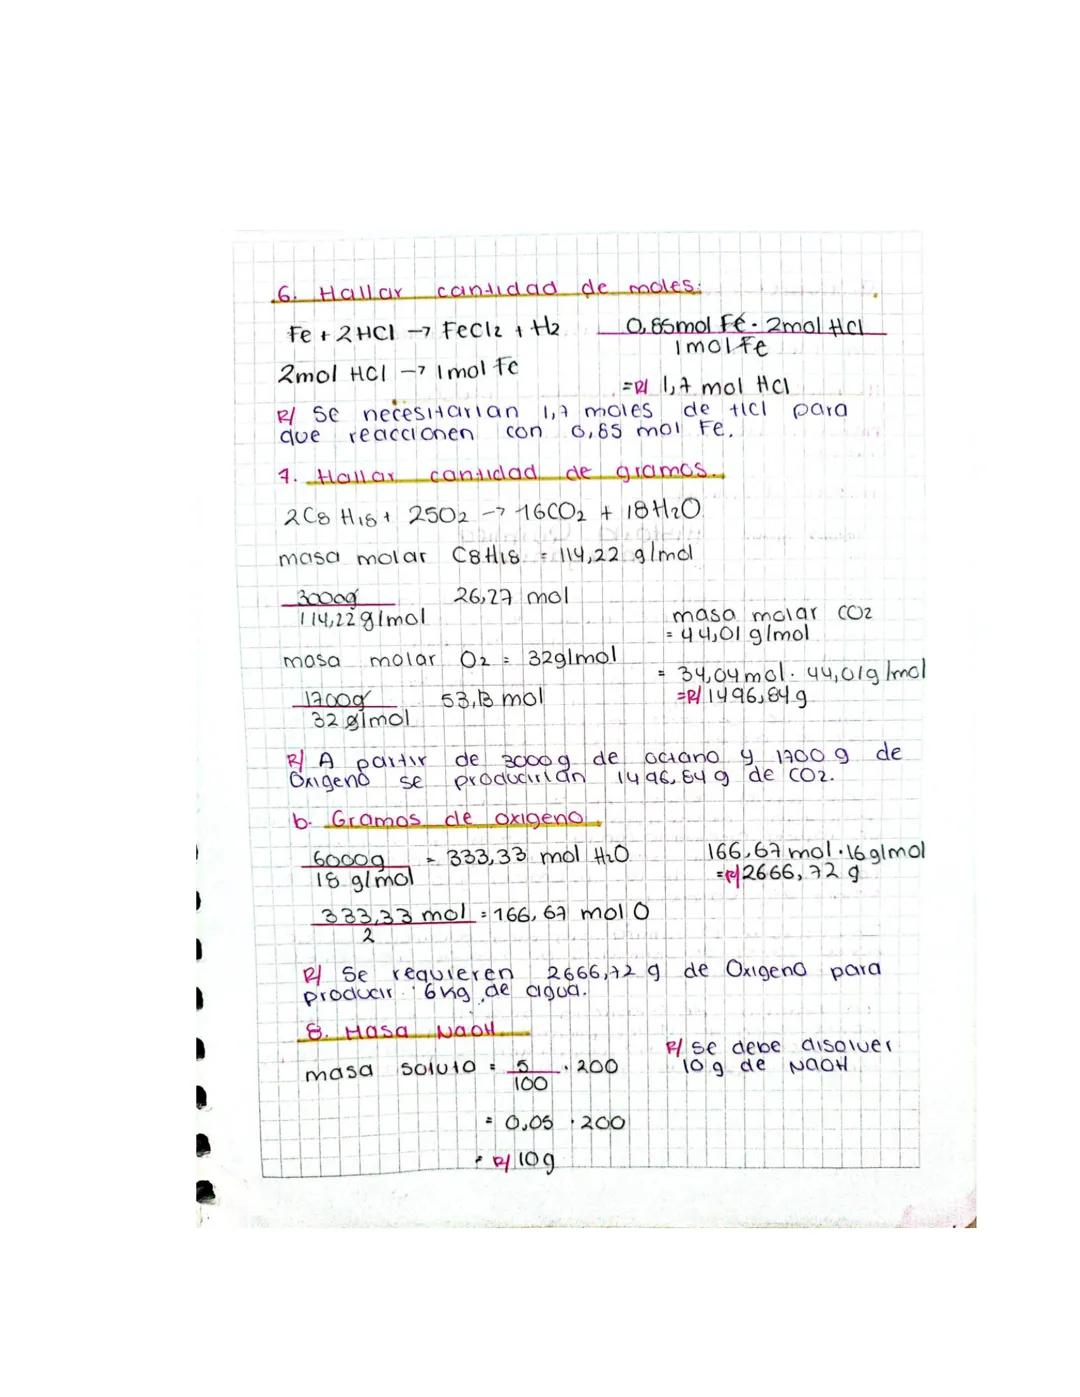 6. Hallar cantidad de moles:
Fe + 2HCl → FeCl2 + H2
0,85mol Fe · 2mol HCl
1molFe
2mol HCl → 1mol Fe
=R/ 1,7 mol HCl
R/ Se necesitarian 1,7 moles de HCl para
que reaccionen con 0,85 mol Fe.
7. Hallar cantidad de gramos.
2C8 H18 + 25O2 → 16CO2 + 18H2O
masa molar C8H18 = 114,22 g/mol
3000g
114,22g/mol
26,27 mol
masa molar CO2
= 44,01 g/mol
masa molar O2 = 32g/mol
= 34,04mol · 44,01g/mol
=R/ 1496,84g
1700g
32 g/mol
53,13 mol
R/ A partir de 3000g de octano y 1700 g de
Oxigeno se producirian 1496,84g de CO2.
b. Gramos de oxigeno
6000g = 333,33 mol H2O
18 g/mol
166,67mol·16g/mol
=R/2666,72 g
333,33 mol = 166,67 mol O
2
R/ Se requieren 2666,72 g de Oxigeno para
producir 6kg de agua.
8. Masa NaOH
masa soluto = 5 · 200
100
R/ se debe disolver
10 g de NaOH
= 0,05 · 200
= R/ 10g